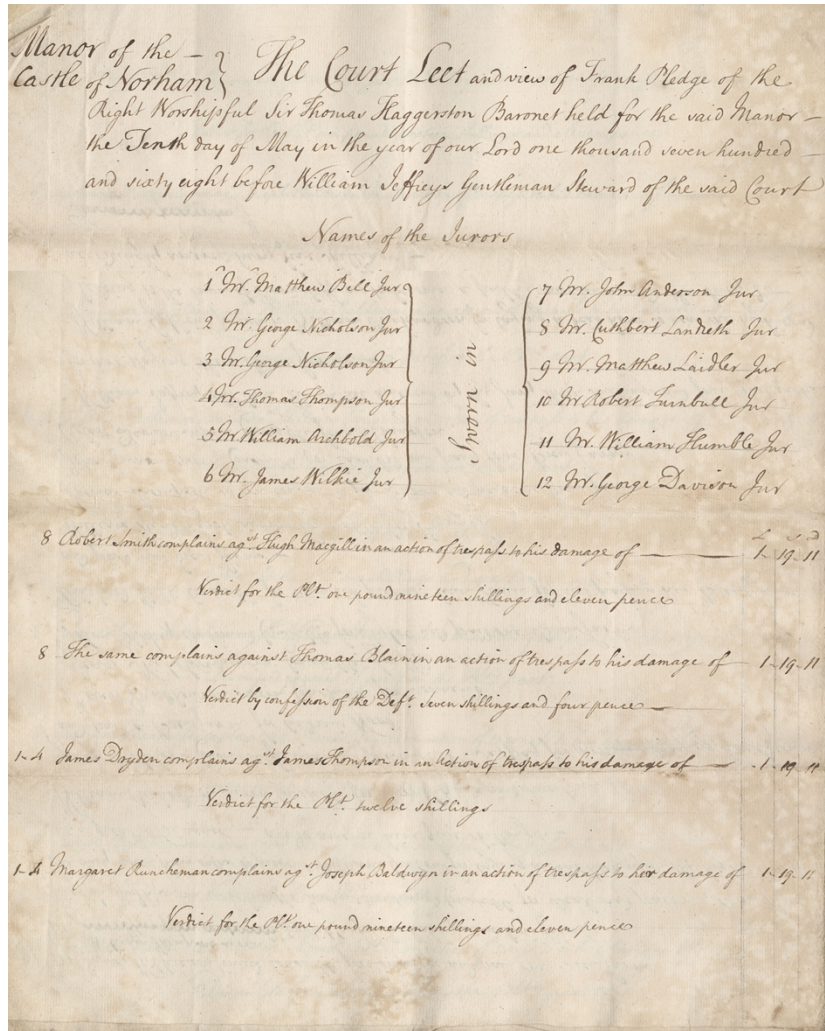 Manor of the –
Castle of Norham } The Court Leet and view of Frank Pledge of the
Right Worshipful Sir Thomas Haggerston Baronet held for the said Manor –
the Tenth day of May in the year of our Lord one thousand seven hundred –
and sixty eight before William Jeffreys Gentleman Steward of the said Court
Names of the Jurors
1 Mr. Matthew Bell Jur
2 Mr. George Nicholson Jur
3 Mr. George Nicholson Jur
4 Mr. Thomas Thompson Jur
5 Mr. William Archbold Jur
6 Mr. James Wilkie Jur
Sworn in
7 Mr. John Anderson Jur
8 Mr. Cuthbert Landreth Jur
9 Mr. Matthew Laidler Jur
10 Mr Robert Turnbull Jur
11 Mr. William Humble Jur
12 Mr. George Davison Jur
£ s d
8 Robert Smith complains agst. Hugh Macgill in an action of trespass to his damage of — 1-19-11
Verdict for the Plt. one pound nineteen shillings and eleven pence
8 The same complains against Thomas Blain in an action of trespass to his damage of 1-19-11
Verdict by confession of the Deft. seven shillings and four pence —
1-4 James Dryden complains agst. James Thompson in an Action of trespass to his damage of — 1-19-11
Verdict for the Plt. twelve shillings
1-4 Margaret Runcheman complains agst. Joseph Baldwyn in an action of trespass to her damage of 1-19-11
Verdict for the Plt. one pound nineteen shillings and eleven pence